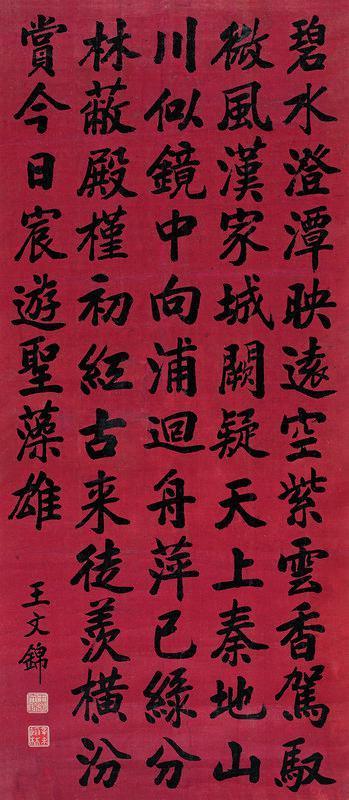 碧水澄潭映遠空紫雲香駕馭
微風漢家城闕疑天上秦地山
川似鏡中向浦迴舟萍已綠分
林蔽殿槿初紅古来徒羨橫汾
賞今日宸遊聖藻雄
王文錦